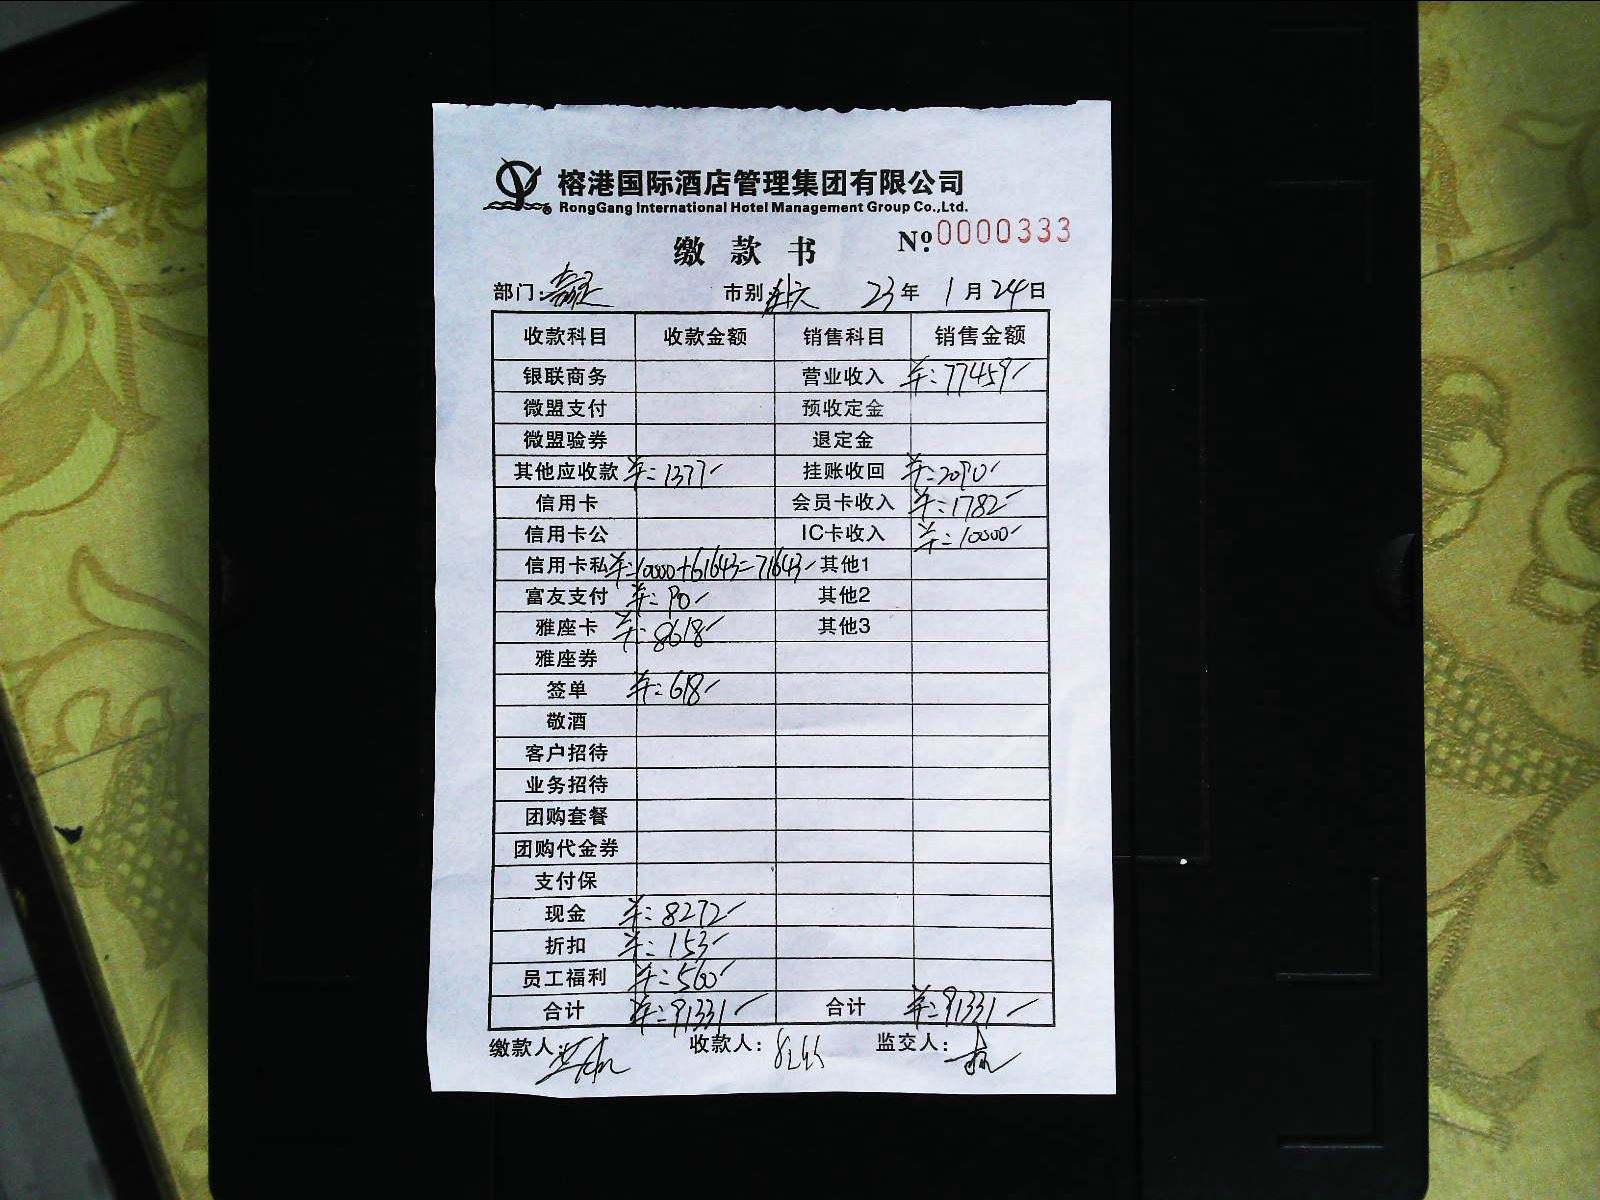 榕港国际酒店管理集团有限公司
RongGang International Hotel Management Group Co.,Ltd.
缴款书 Nº 0000333
部门: 市别: 23年 1月24日
收款科目 收款金额 销售科目 销售金额
银联商务 营业收入 羊:77459
微盟支付 预收定金
微盟验券 退定金
其他应收款 羊:1377 挂账收回 羊:2090
信用卡 会员卡收入 羊:1782
信用卡公 IC卡收入 羊:10000
信用卡私 羊:10000+61643=71643 其他1
富友支付 羊:90 其他2
雅座卡 羊:8618 其他3
雅座券
签单 羊:618
敬酒
客户招待
业务招待
团购套餐
团购代金券
支付保
现金 羊:8272
折扣 羊:153
员工福利 羊:560
合计 羊:91331 合计 羊:91331
缴款人: 收款人: 监交人: